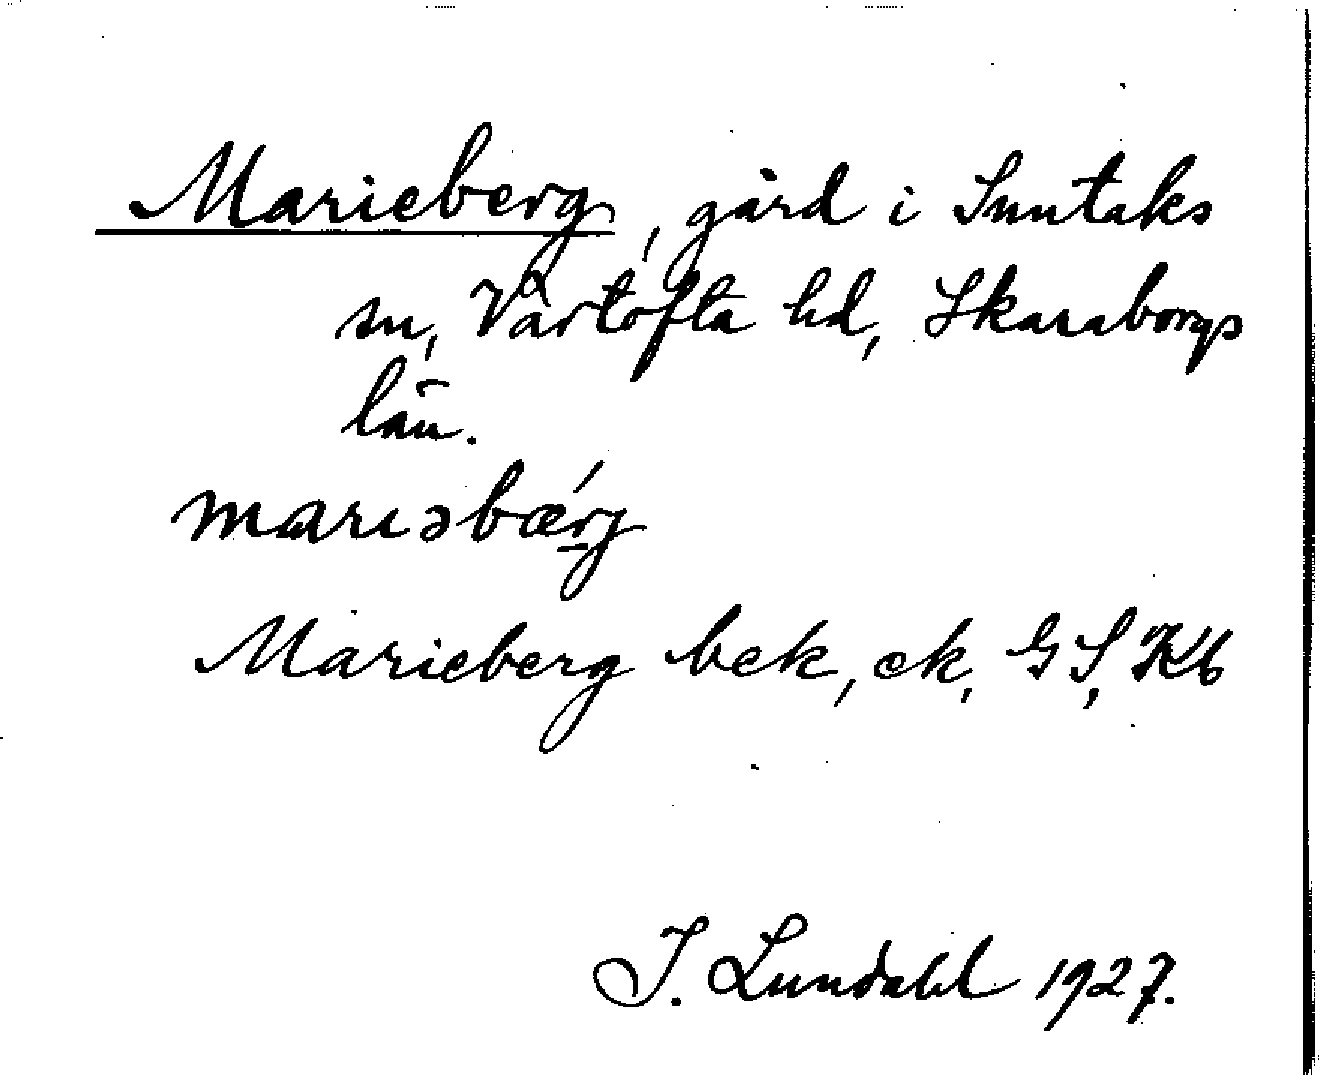 Marieberg, gård i Suntaks
sn, Vartofta hd, Skaraborgs
län.
marıəbǽrj
Marieberg bek, ek, GS, Kb
I. Lundahl 1927.